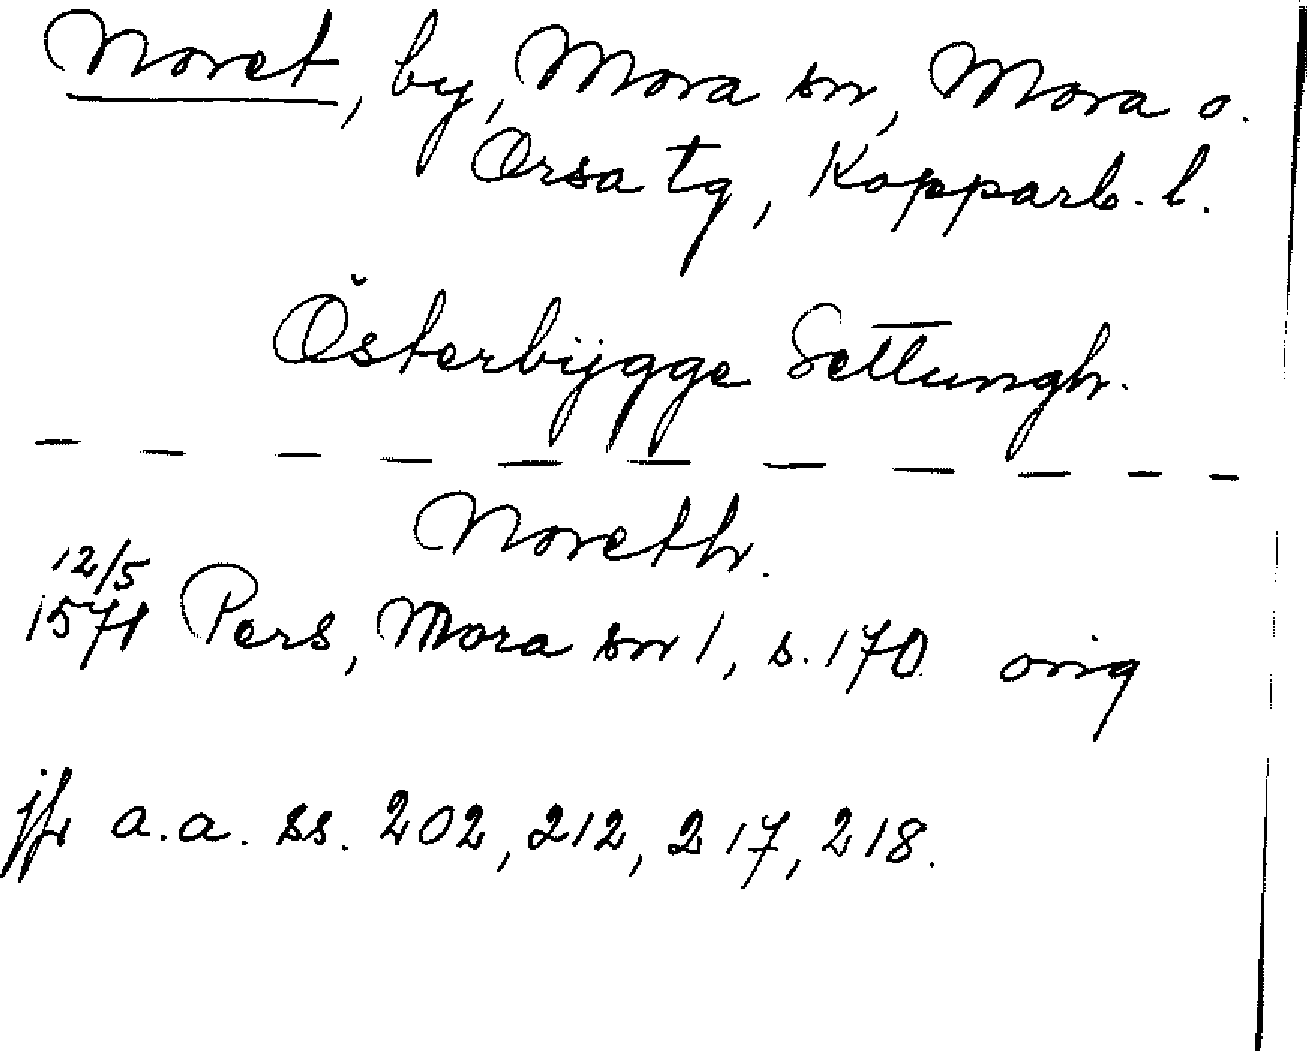 Noret, by, Mora sn, Mora o.
Orsa tg, Kopparb. l.
Österbijgge Settungh.
— — — — — — — — — — —
Noreth.
12/5
1571 Pers, Mora sn 1, s. 170 orig
jfr a.a. ss. 202, 212, 217, 218.